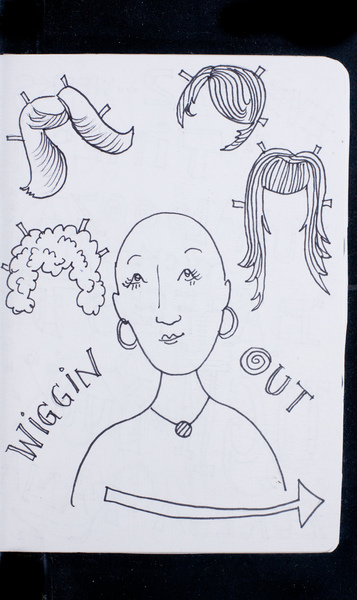 WiGGiN OUT